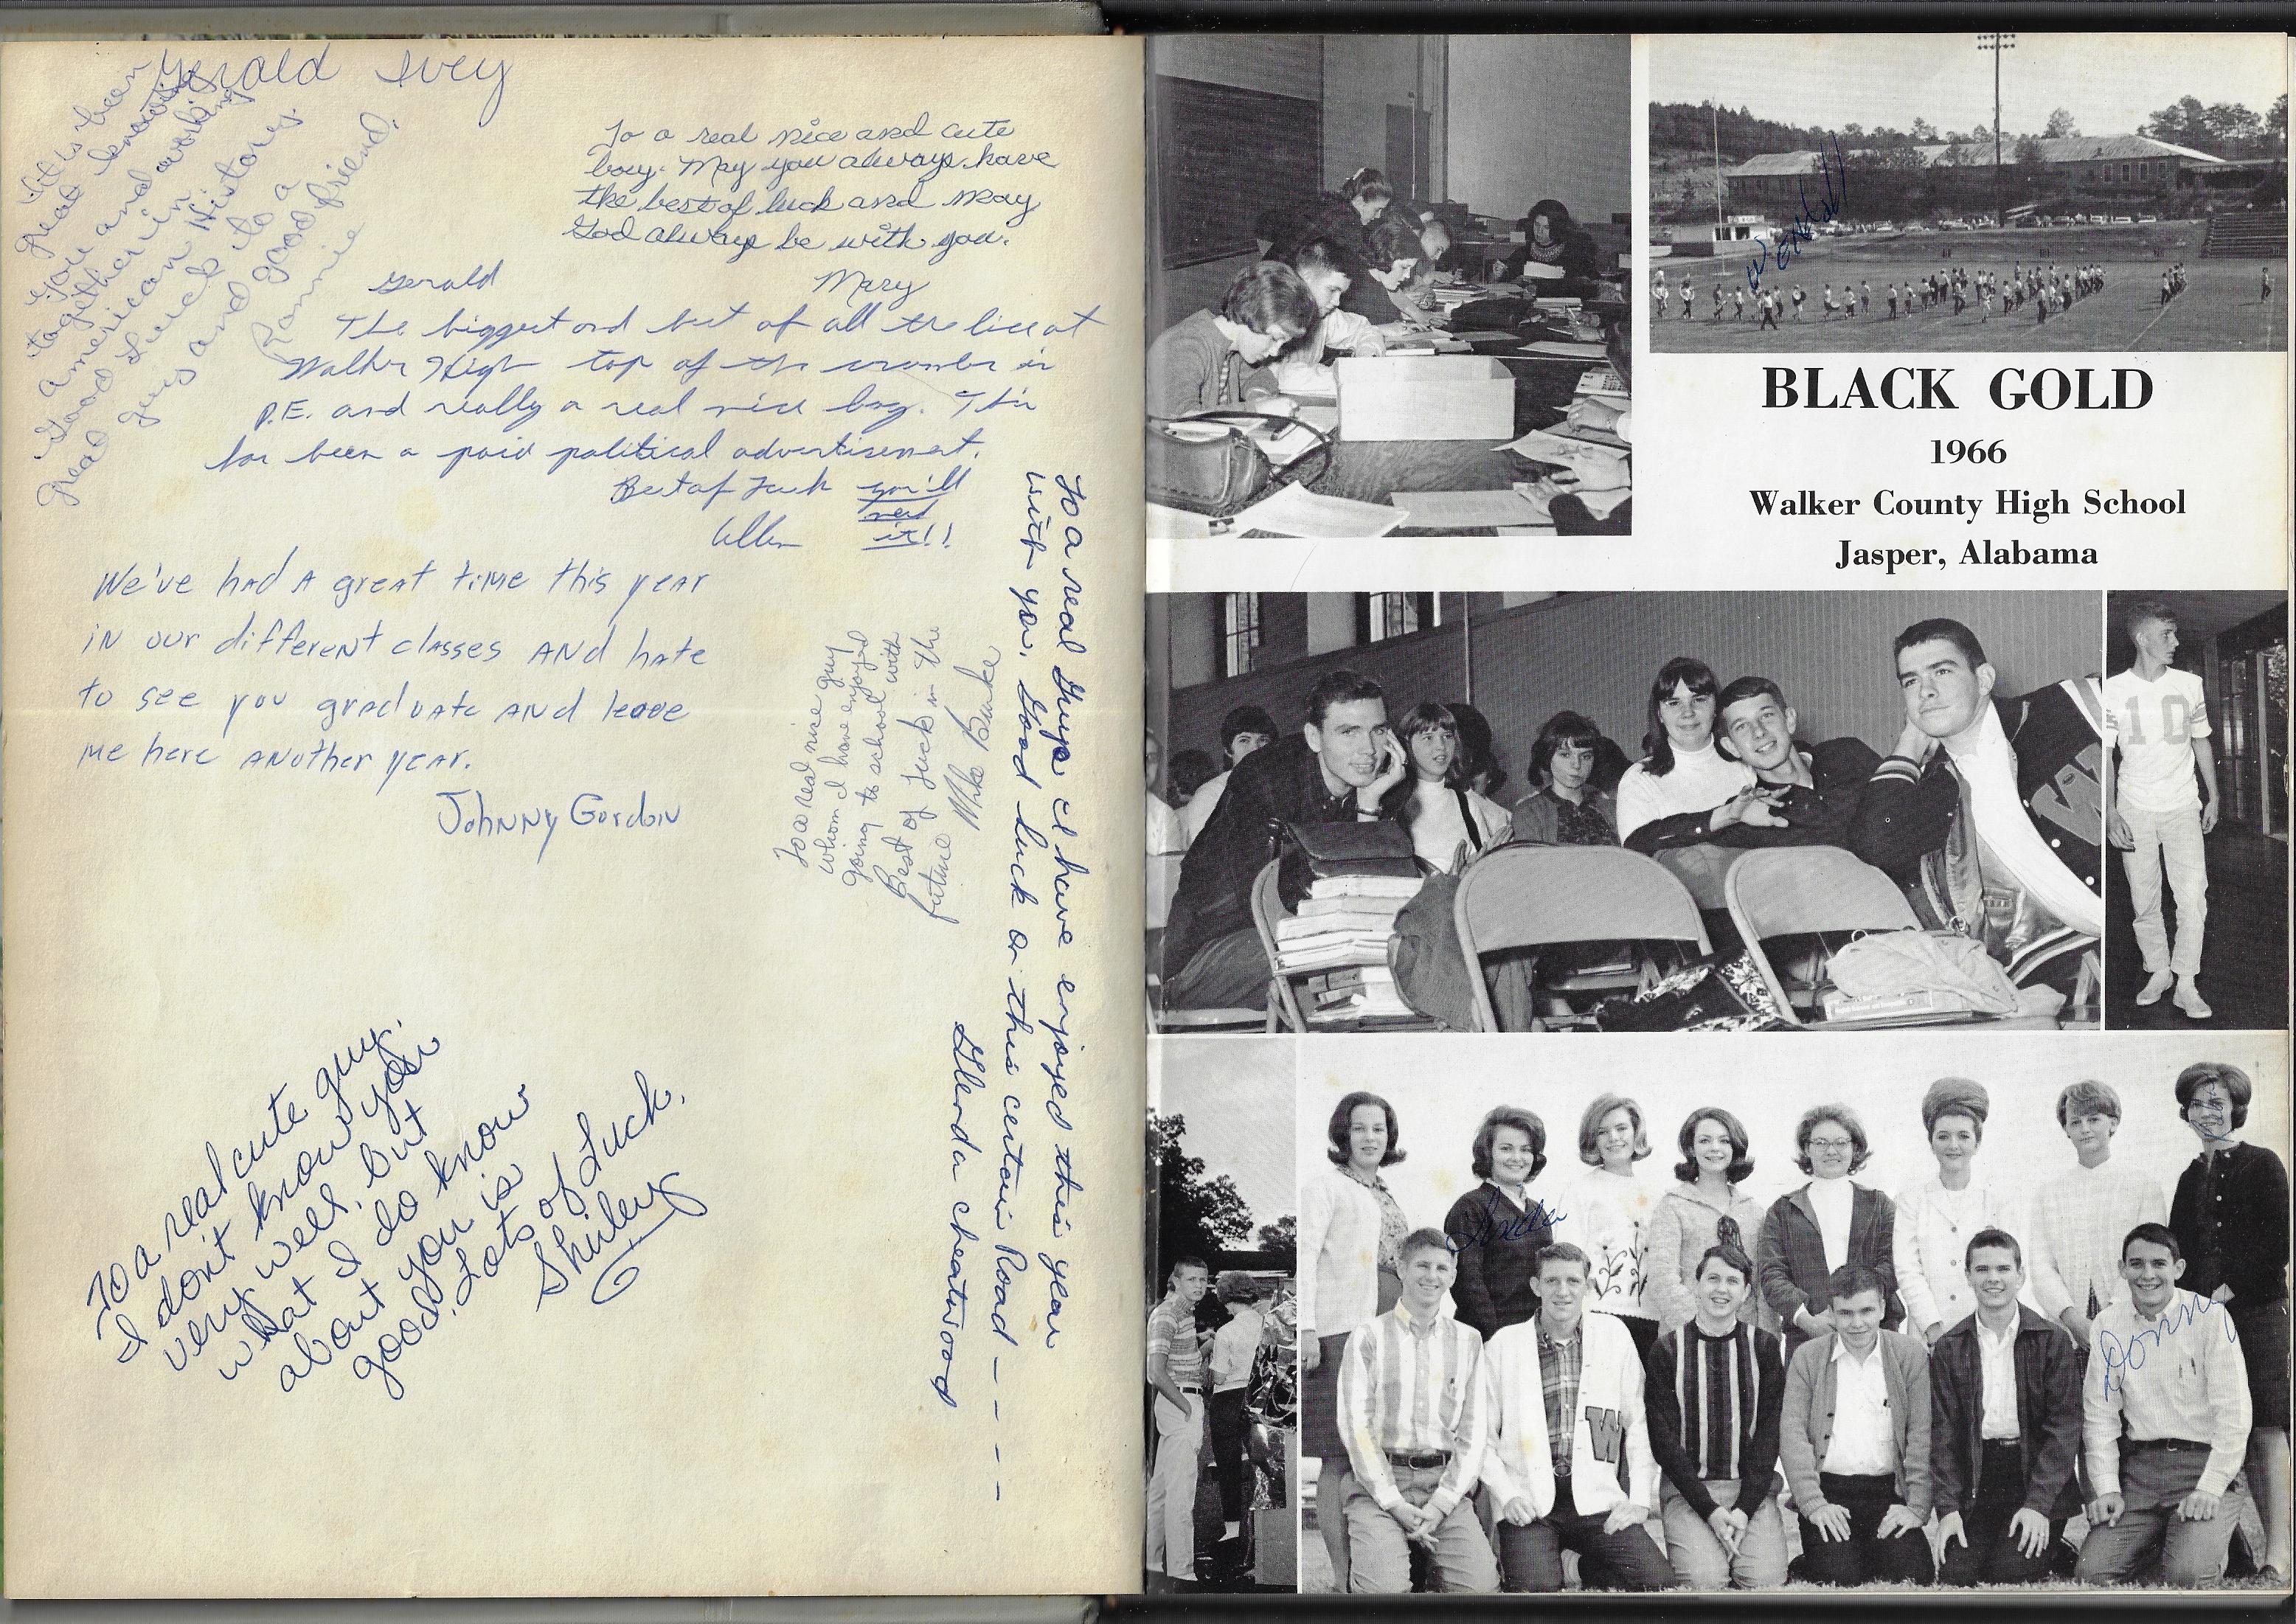 Gerald Ivey
It's been
great knowing
you and working
together in
American History.
Good Luck to a
great guy and good friend.
Ronnie
To a real nice and cute
boy. May you always have
the best of luck and may
God always be with you.
Mary
Gerald
The biggest and best of all the lice at
Walker High top of the in
P.E. and really a real nice boy. This
has been a paid political advertisement.
Best of Luck you'll
need
it!!
Allen
We've had a great time this year
in our different classes and hate
to see you graduate and leave
me here another year.
Johnny Gordon
To a real nice guy
whom I have enjoyed
going to school with
Best of Luck in the
future Mike Burke
To a real guy I have enjoyed this year
with you. Good luck on this certain Road - - - -
Glenda
To a real cute guy.
I don't know you
very well, but
what I do know
about you is
good. Lots of Luck.
Shirley
Wendall
BLACK GOLD
1966
Walker County High School
Jasper, Alabama
10
W
Linda
W
Donny